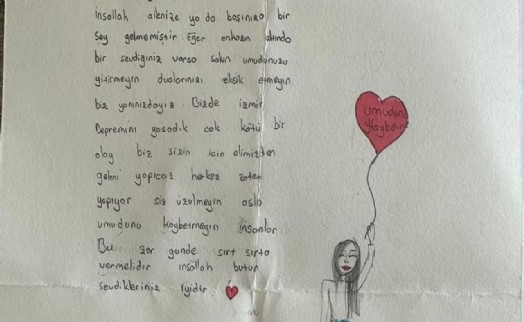 insallah ailenize ya da başınıza bir
şey gelmemiştir Eğer enkazın altında
bir sevdiğiniz varsa sakın umudunuzu
yitirmeyin dualarınızı eksik etmeyin
biz yanınızdayız Bizde izmir
Depremini yaşadık çok kötü bir
olay biz sizin için elimizden
geleni yapıcaz herkes zaten
yapıyor siz üzülmeyin asla
umudunu kaybetmeyin insanlar
Bu zor günde sırt sırta
vermelidir insallah bütün
sevdikleriniz iyidir.
umudunu
Kaybetme